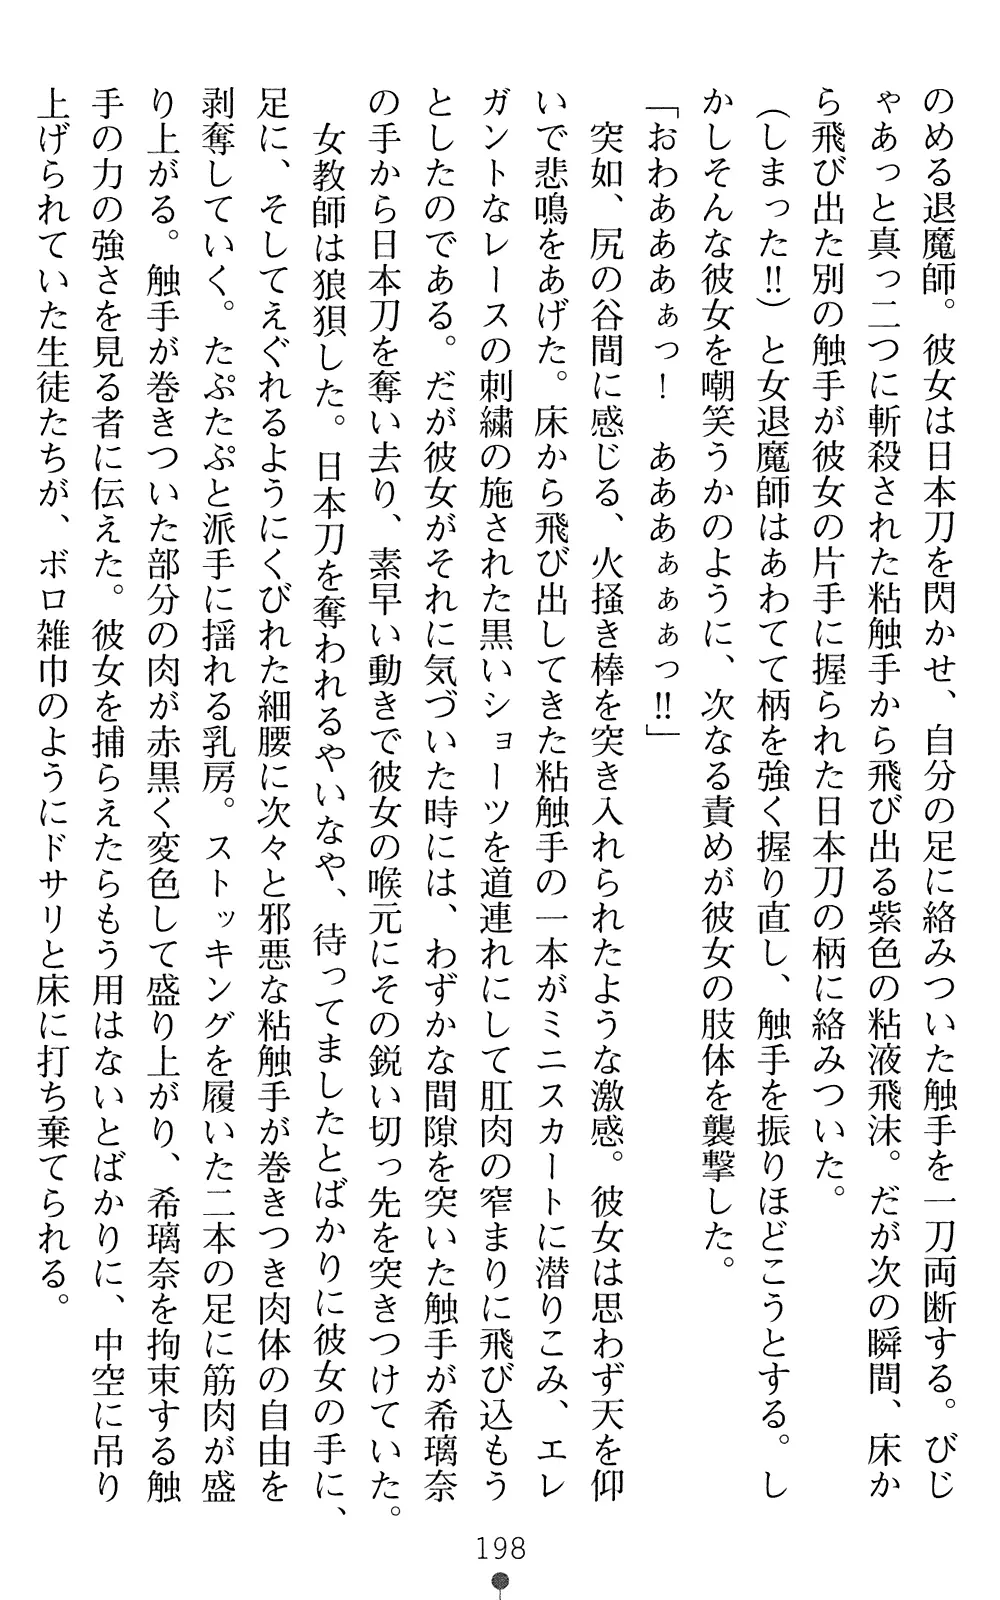 のめる退魔師。彼女は日本刀を閃かせ、自分の足に絡みついた触手を一刀両断する。びじ
ゃあっと真っ二つに斬殺された粘触手から飛び出る紫色の粘液飛沫。だが次の瞬間、床か
ら飛び出た別の触手が彼女の片手に握られた日本刀の柄に絡みついた。
（しまった!!）と女退魔師はあわてて柄を強く握り直し、触手を振りほどこうとする。し
かしそんな彼女を嘲笑うかのように、次なる責めが彼女の肢体を襲撃した。
「おわああぁっ！　あああぁぁぁっ!!」
　突如、尻の谷間に感じる、火掻き棒を突き入れられたような激感。彼女は思わず天を仰
いで悲鳴をあげた。床から飛び出してきた粘触手の一本がミニスカートに潜りこみ、エレ
ガントなレースの刺繍の施された黒いショーツを道連れにして肛肉の窄まりに飛び込もう
としたのである。だが彼女がそれに気づいた時には、わずかな間隙を突いた触手が希璃奈
の手から日本刀を奪い去り、素早い動きで彼女の喉元にその鋭い切っ先を突きつけていた。
　女教師は狼狽した。日本刀を奪われるやいなや、待ってましたとばかりに彼女の手に、
足に、そしてえぐれるようにくびれた細腰に次々と邪悪な粘触手が巻きつき肉体の自由を
剥奪していく。たぷたぷと派手に揺れる乳房。ストッキングを履いた二本の足に筋肉が盛
り上がる。触手が巻きついた部分の肉が赤黒く変色して盛り上がり、希璃奈を拘束する触
手の力の強さを見る者に伝えた。彼女を捕らえたらもう用はないとばかりに、中空に吊り
上げられていた生徒たちが、ボロ雑巾のようにドサリと床に打ち棄てられる。
198